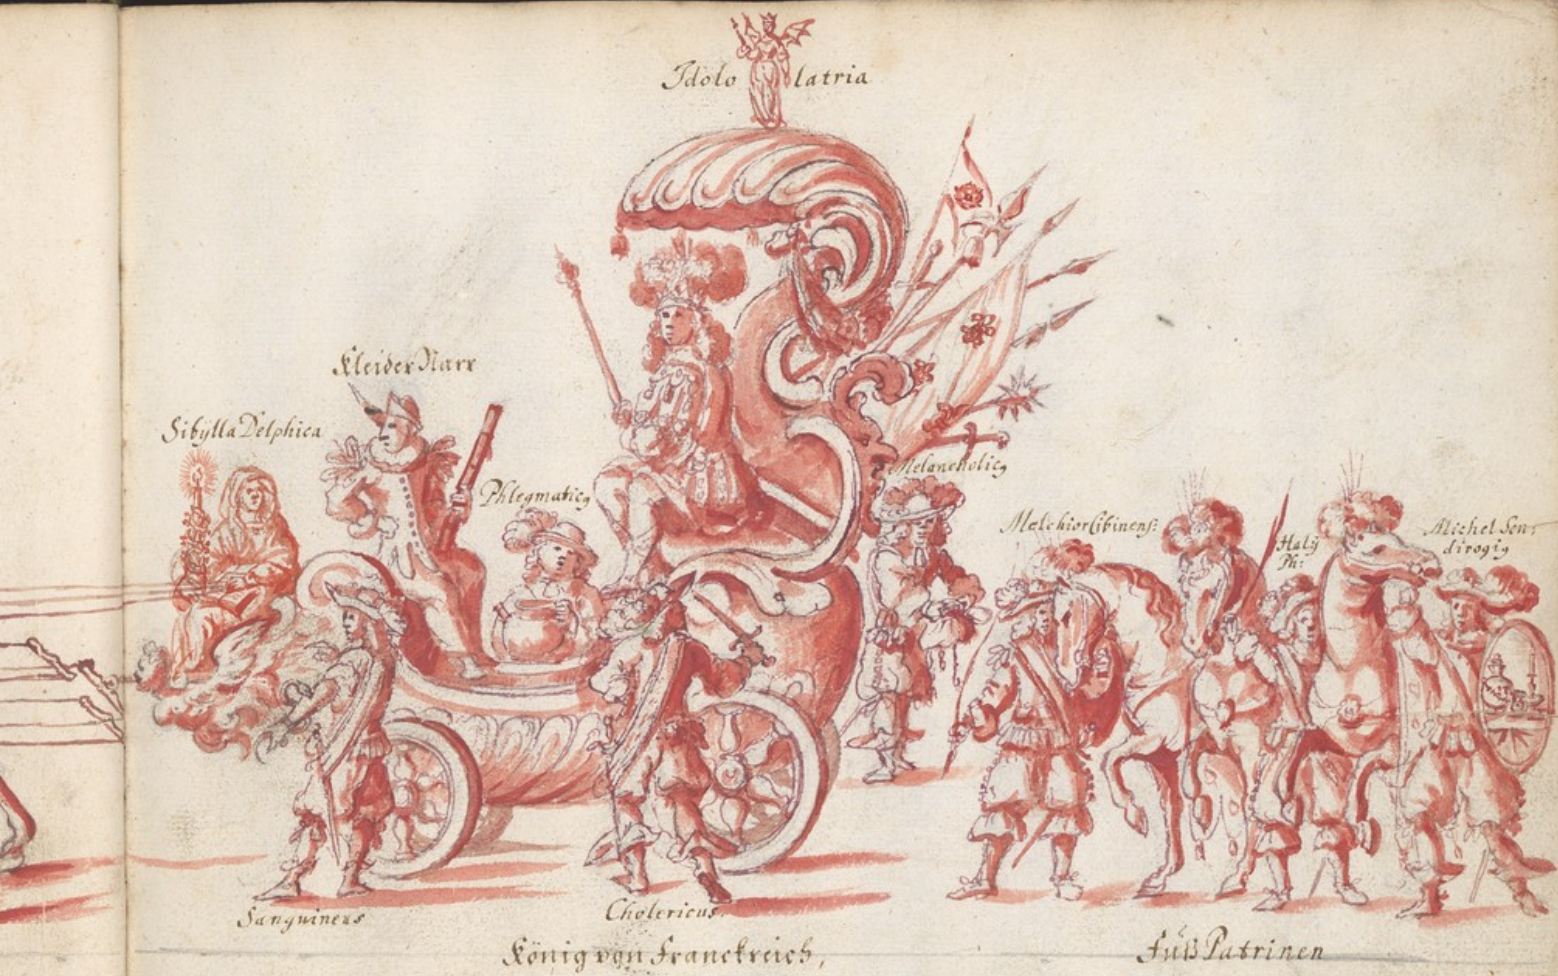 Idolo latria
Kleider Narr
Sibÿlla Delphica
Phlegmaticq
Melancholicq
Melchior Cibinens:
Halÿ
Ph:
Michel Sen:
divogiq
Sanguineus
Cholericus.
König von Franckreich,
Füß Patrinen